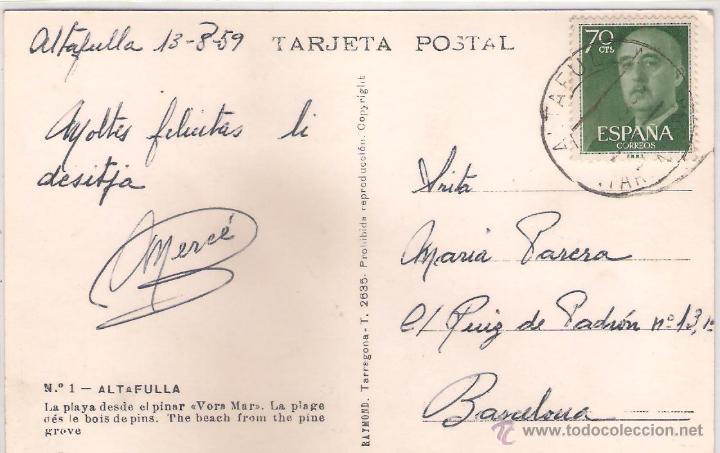 Altafulla 13-8-59
TARJETA POSTAL
Moltes felicitats li
desitja
Mercé
N.º 1 — ALTAFULLA
La playa desde el pinar «Vora Mar». La plage
dés le bois de pins. The beach from the pine
grove
RAYMOND. Tarragona - T. 2635. Prohibida reproducción. Copyright
70 CTS
ESPAÑA
CORREOS
ALTAFUL
TAR
Srita
Maria Parera
c/ Puig de Padrón nº 13, 1º
Barcelona
www.todocoleccion.net